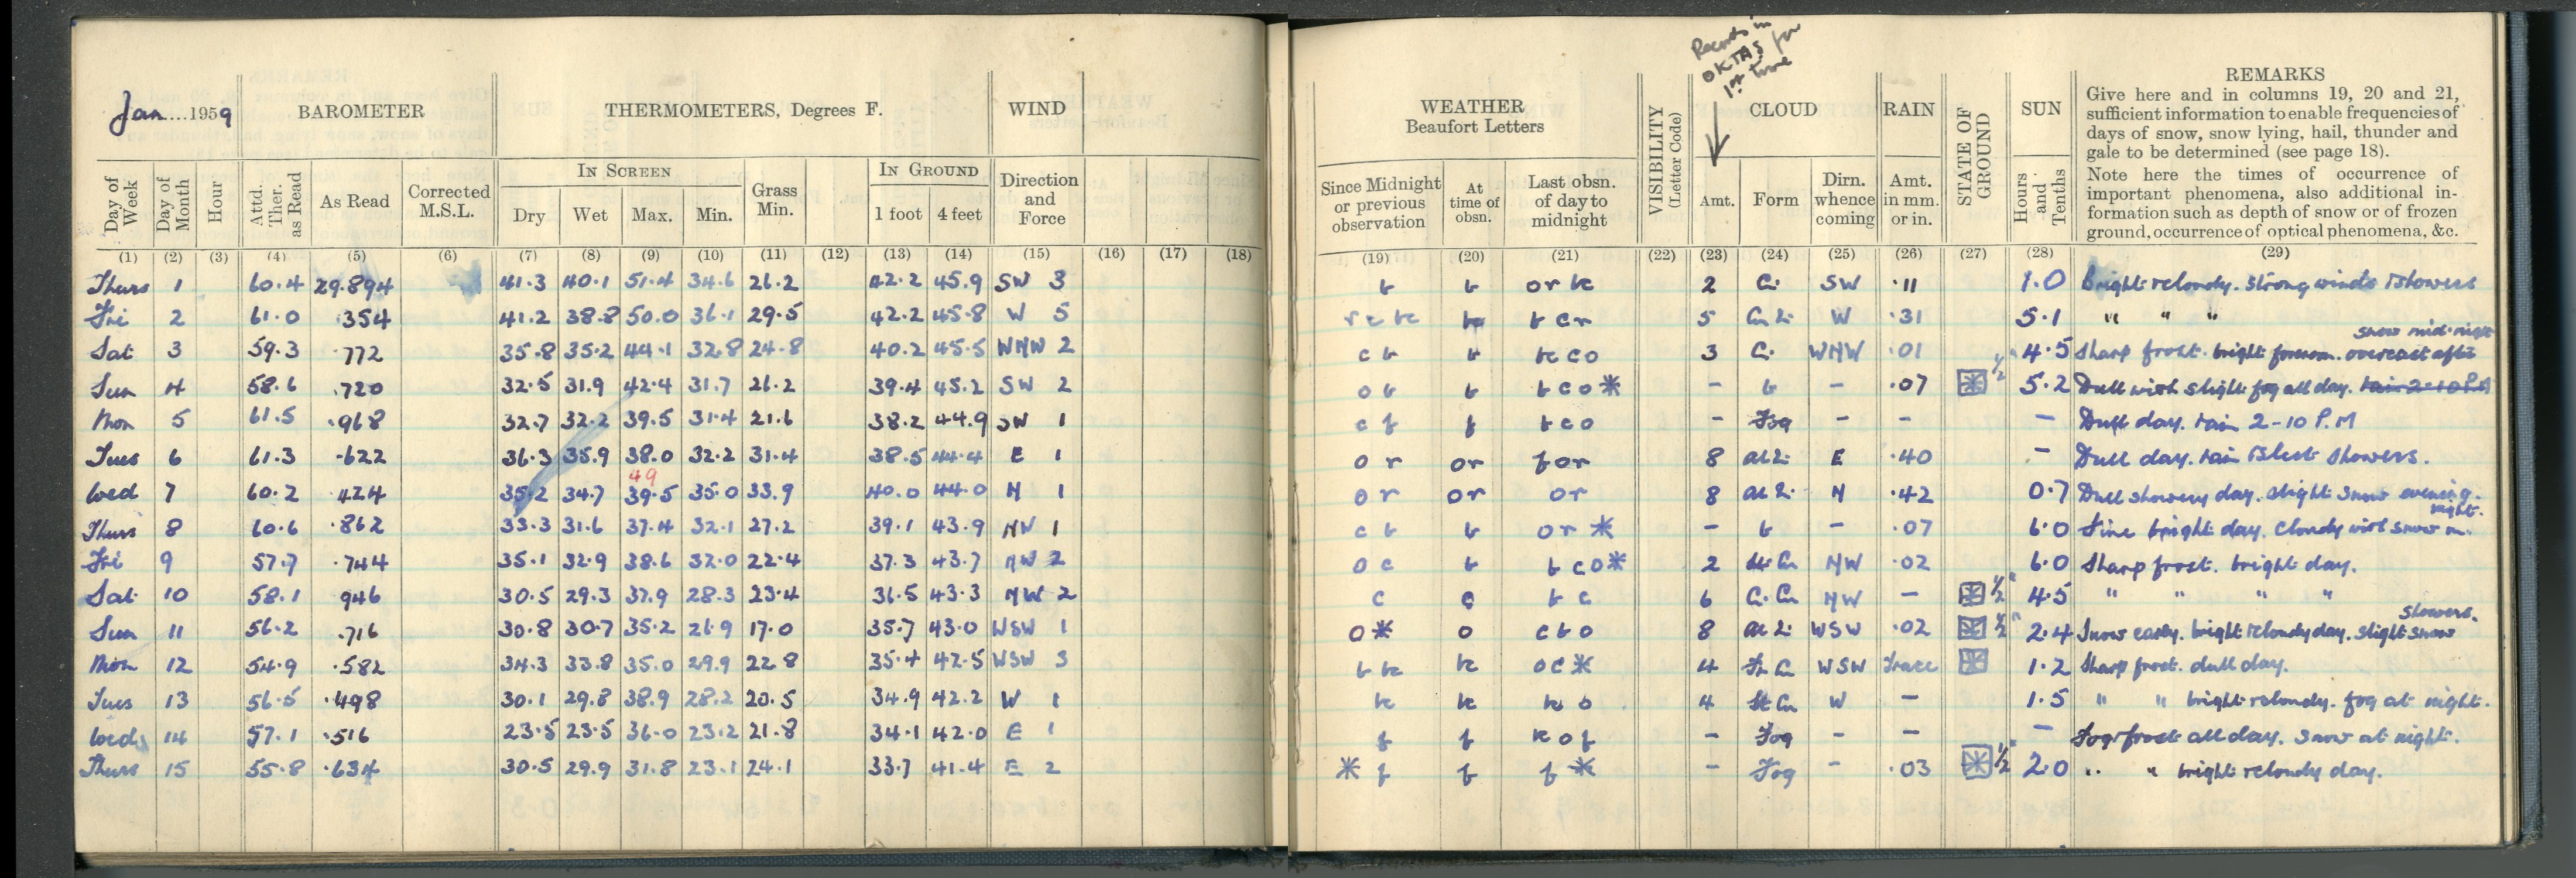 Records in
OKTAS for
1st time
Jan....1959
BAROMETER
THERMOMETERS, Degrees F.
WIND
WEATHER
Beaufort Letters
VISIBILITY
(Letter Code)
CLOUD
RAIN
STATE OF
GROUND
SUN
REMARKS
Give here and in columns 19, 20 and 21,
sufficient information to enable frequencies of
days of snow, snow lying, hail, thunder and
gale to be determined (see page 18).
Note here the times of occurrence of
important phenomena, also additional in-
formation such as depth of snow or of frozen
ground, occurrence of optical phenomena, &c.
IN SCREEN
IN GROUND
Day of Week
Day of Month
Hour
Attd. Ther. as Read
As Read
Corrected M.S.L.
Dry
Wet
Max.
Min.
Grass Min.
1 foot
4 feet
Direction and Force
Since Midnight or previous observation
At time of obsn.
Last obsn. of day to midnight
Amt.
Form
Dirn. whence coming
Amt. in mm. or in.
Hours and Tenths
(1) (2) (3) (4) (5) (6) (7) (8) (9) (10) (11) (12) (13) (14) (15) (16) (17) (18) (19) (20) (21) (22) (23) (24) (25) (26) (27) (28) (29)
Thurs 1 60.4 29.894 41.3 40.1 51.4 34.6 26.2 42.2 45.9 SW 3 b b 2 Ci SW .11 1.0 bright & cloudy. Strong winds & showers
Fri 2 61.0 .354 41.2 38.8 50.0 36.1 29.5 42.2 45.8 W 5 5 W .31 5.1 " " "
snow mid-night
Sat 3 59.3 .772 35.8 35.2 44.1 32.8 24.8 40.2 45.5 WNW 2 c b b 3 Ci WNW .01 4.5 Sharp frost. bright forenoon. overcast after
Sun 4 58.6 .720 32.5 31.9 42.4 31.7 21.2 39.4 45.2 SW 2 o b b b c o * - b - .07 1/2" 5.2 Dull with slight fog all day. rain 2-10 P.M
Mon 5 61.5 .968 32.7 32.2 39.5 31.4 21.6 38.2 44.9 SW 1 c f f b c o - Fog - - - Dull day. rain 2-10 P.M
Tues 6 61.3 .622 36.3 35.9 38.0 32.2 31.4 38.5 44.4 E 1 o r o r f o r 8 E .40 - Dull day. rain & sleet showers.
49
Wed 7 60.2 .424 35.2 34.7 39.5 35.0 33.9 40.0 44.0 N 1 o r o r o r 8 N .42 0.7 Dull showery day. slight snow evening.
night.
Thurs 8 60.6 .862 33.3 31.6 37.4 32.1 27.2 39.1 43.9 NW 1 c b b o r * - b - .07 6.0 Fine bright day. Cloudy with snow in
Fri 9 57.7 .744 35.1 32.9 38.6 32.0 22.4 37.3 43.7 NW 2 o c b b c o * 2 NW .02 6.0 Sharp frost. bright day.
Sat 10 58.1 946 30.5 29.3 37.9 28.3 23.4 36.5 43.3 NW 2 c c b c 6 Ci.Cu NW - 1/2" 4.5 " " " "
showers.
Sun 11 56.2 .716 30.8 30.7 35.2 26.9 17.0 35.7 43.0 WSW 1 o * o c b o 8 WSW .02 1/2" 2.4 Snow early. bright & cloudy day. slight snow
Mon 12 54.9 .582 34.3 33.8 35.0 29.9 22.8 35.4 42.5 WSW 3 o c * 4 WSW Trace 1.2 Sharp frost. dull day.
Tues 13 56.5 .498 30.1 29.8 38.9 28.2 20.5 34.9 42.2 W 1 4 St Cu W - 1.5 " " bright & cloudy. fog at night.
Wed 14 57.1 .516 23.5 23.5 36.0 23.2 21.8 34.1 42.0 E 1 f f - Fog - - - Fog & frost all day. Snow at night.
Thurs 15 55.8 .634 30.5 29.9 31.8 23.1 24.1 33.7 41.4 E 2 * f f f * - Fog - .03 1/2" 2.0 " " bright & cloudy day.